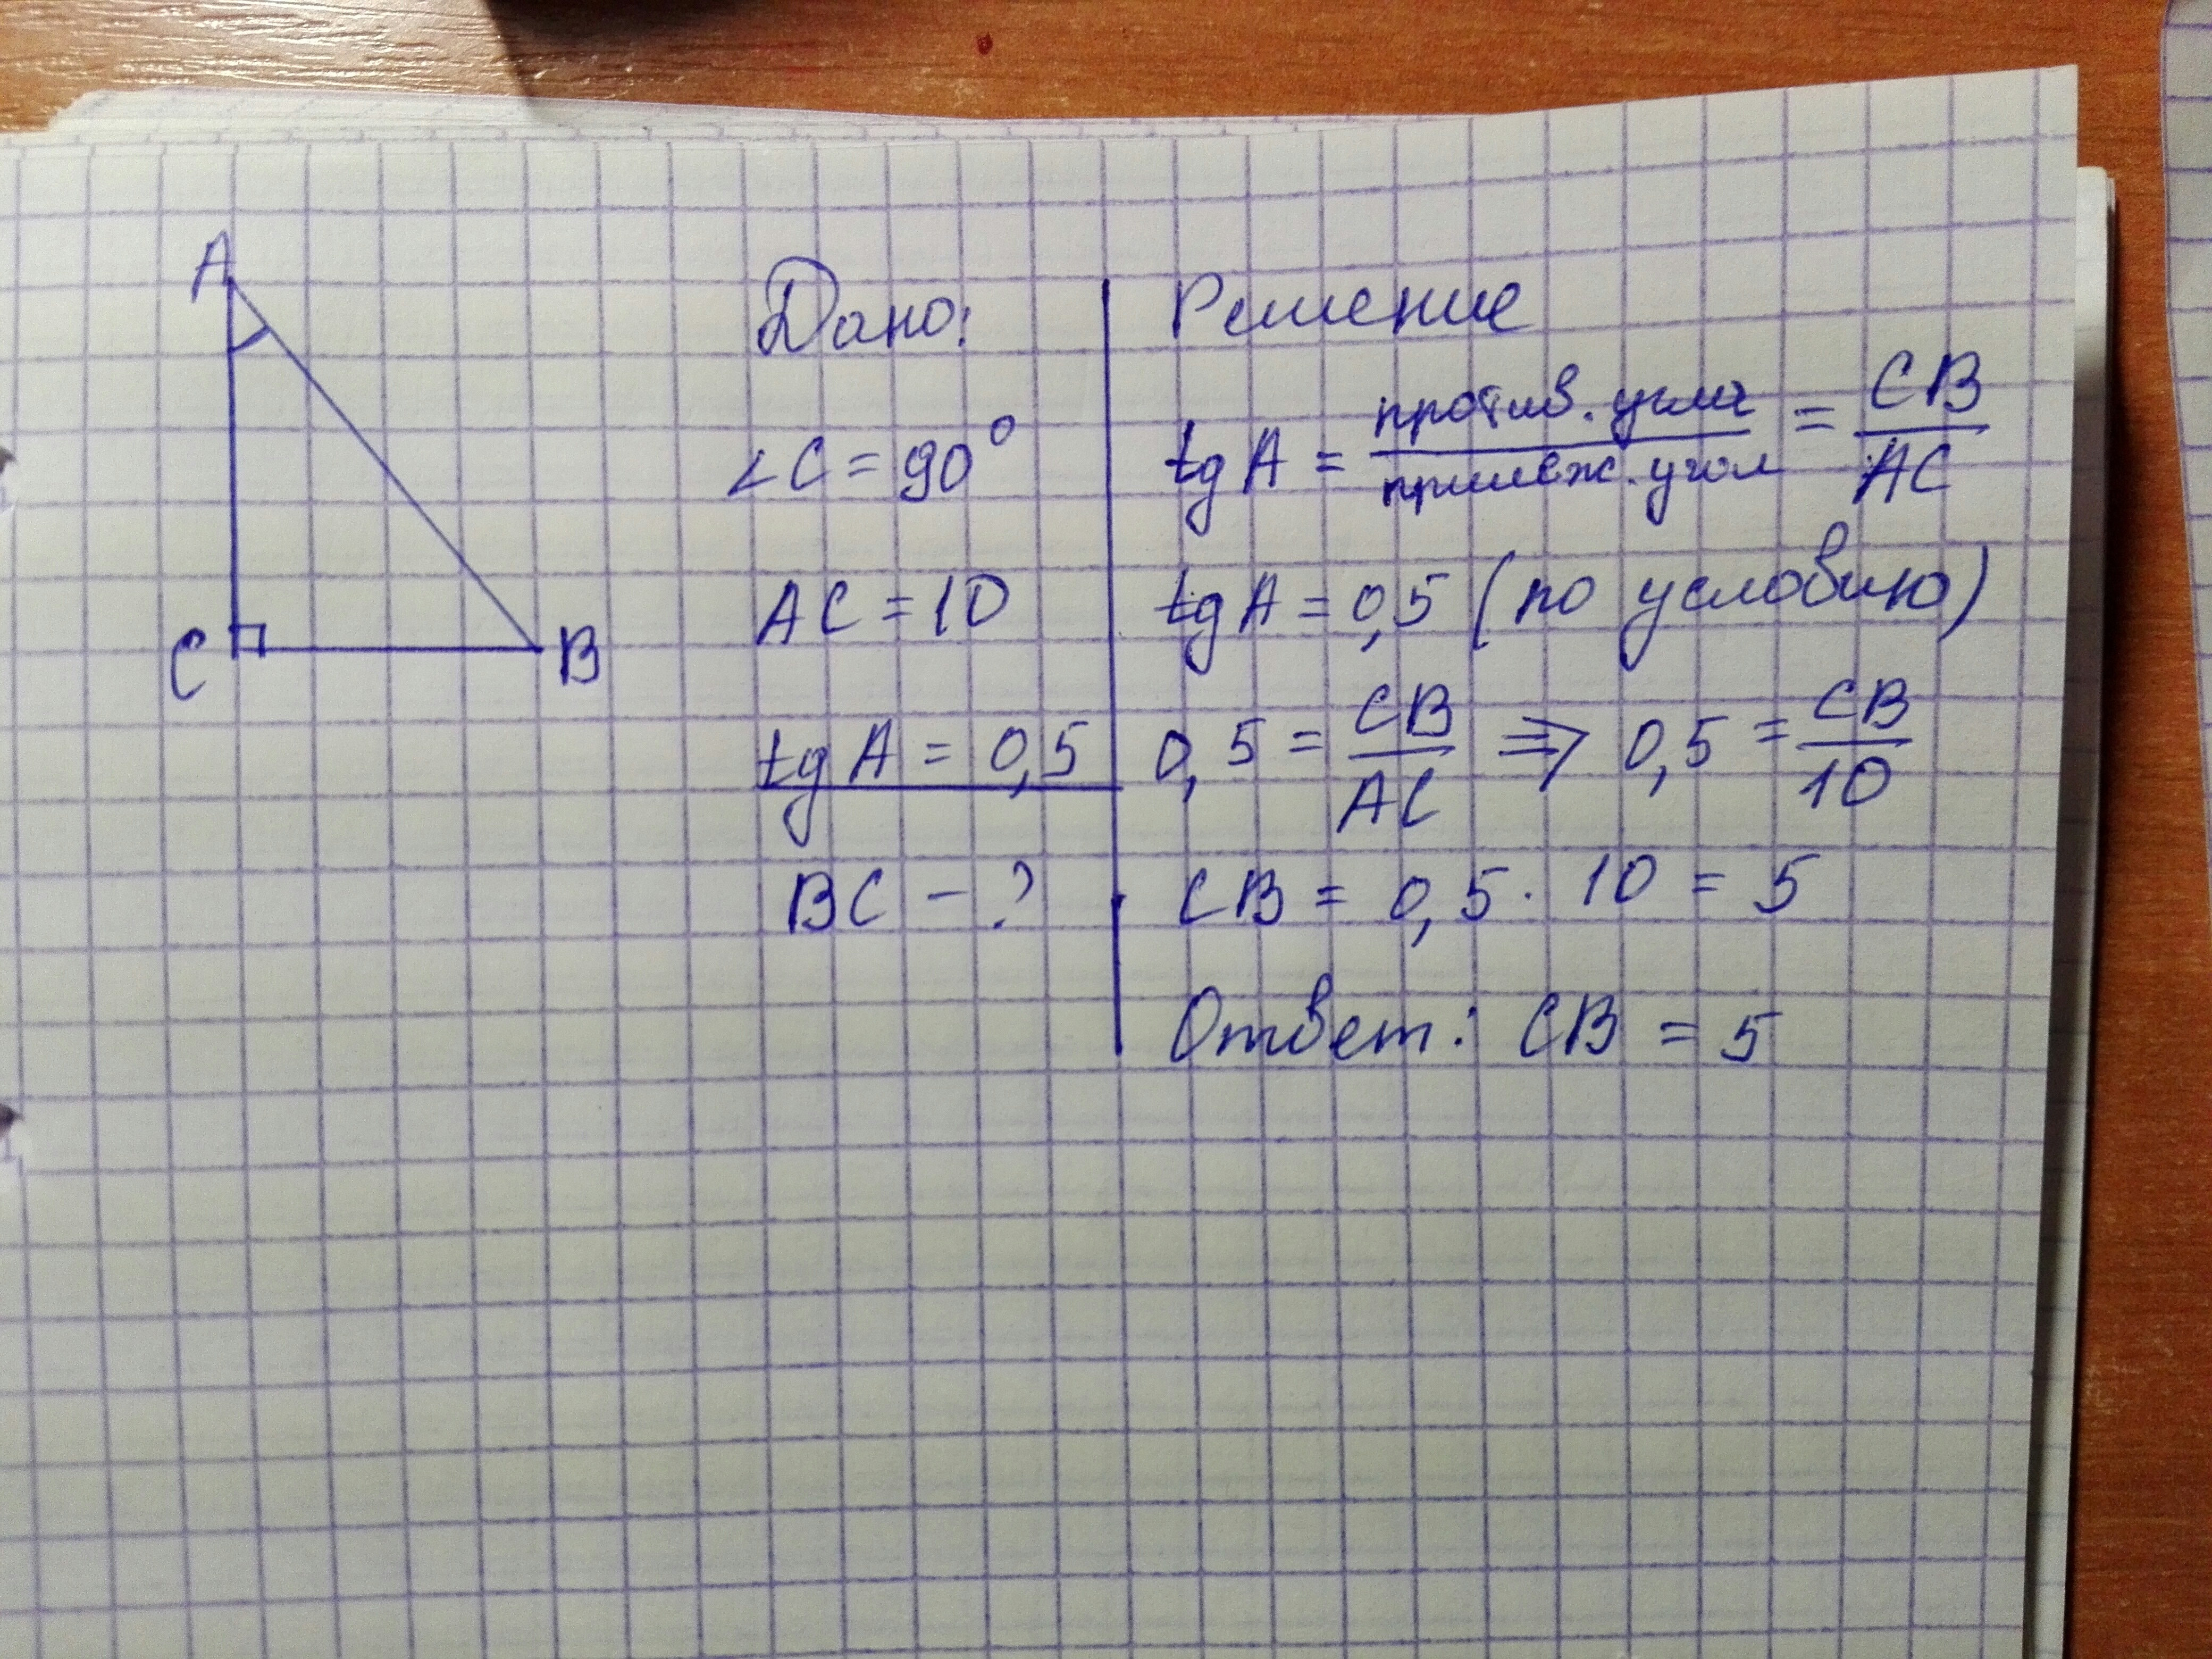 A
C
B
Дано:
∠C = 90°
AC = 10
tg A = 0,5
BC - ?
Решение
tg A = против. угла / прилеж. угол = CB / AC
tg A = 0,5 (по условию)
0,5 = CB / AC ⇒ 0,5 = CB / 10
CB = 0,5 · 10 = 5
Ответ: CB = 5